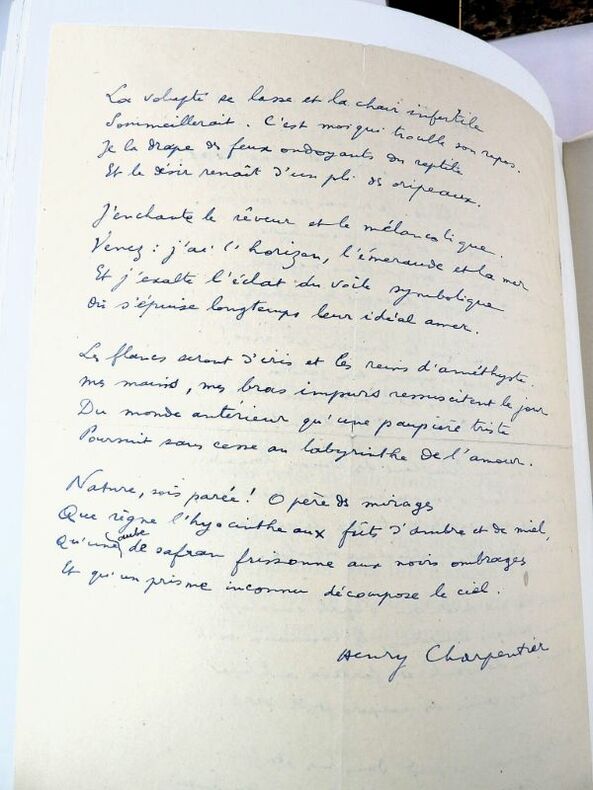 La volupté se lasse et la chair infertile
Sommeillerait. C'est moi qui trouble son repos.
Je la drape des feux ondoyants du reptile
Et le désir renaît d'un pli des oripeaux.
J'enchante le rêveur et le mélancolique.
Venez : j'ai l'horizon, l'émeraude et la mer
Et j'exalte l'éclat du voile symbolique
Où s'épuise longtemps leur idéal amer.
Les flancs seront d'iris et les reins d'améthyste.
mes mains, mes bras impurs ressuscitent le jour
Du monde antérieur qu'une paupière triste
Poursuit sans cesse au labyrinthe de l'amour.
Nature, sois parée ! O père des mirages
Que règne l'hyacinthe aux fûts d'ambre et de miel,
Qu'une aube de safran frissonne aux noirs ombrages
Et qu'un prisme inconnu décompose le ciel.
Henry Charpentier